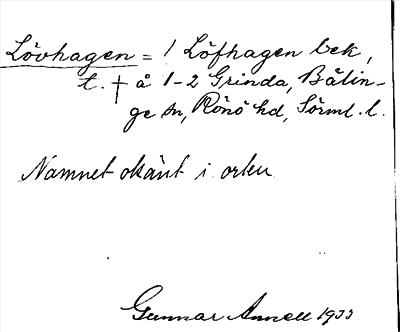 Lövhagen = 1 Löfhagen bek,
t. † å 1-2 Grinda, Bälin-
ge sn, Rönö hd, Sörml. l.
Namnet okänt i orten
Gunnar Annell 1933